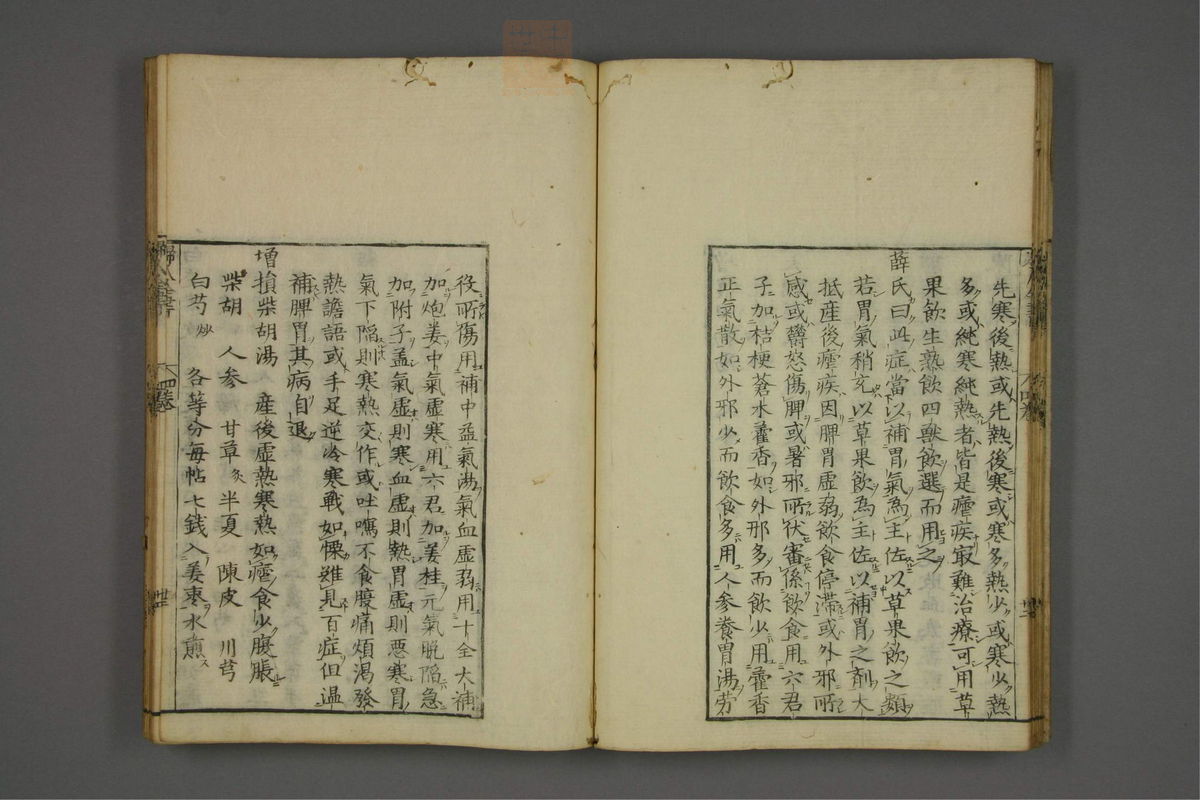 先寒後熱或先熱後寒或寒多熱少或寒少熱
多或純寒純熱者皆是瘧疾㝡難治療可用草
果飲生熟飲四獸飲選而用之
薛氏曰此症當以補胃氣為主佐以草果飲之類
若胃氣稍充以草果飲為主佐以補胃之劑大
抵産後瘧疾因脾胃虛弱飲食停滯或外邪所
感或欝怒傷脾或暑邪所伏審係飲食用六君
子加桔梗蒼朮藿香如外邪多而飲少用藿香
正氣散如外邪少而飲食多用人参養胃湯劳
役所傷用補中益氣湯氣血虛弱用十全大補
加炮姜中氣虛寒用六君加姜桂元氣脫陷急
加附子盖氣虛則寒血虛則熱胃虛則惡寒胃
氣下陷則寒熱交作或吐嘔不食腹痛煩渴發
熱譫語或手足逆冷寒戰如慄雖見百症但温
補脾胃其病自退
增損柴胡湯 産後虛熱寒熱如瘧食少腹脹
柴胡 人参 甘草炙 半夏 陳皮 川芎
白芍炒 各等分每帖七銭入姜棗水煎
四卷